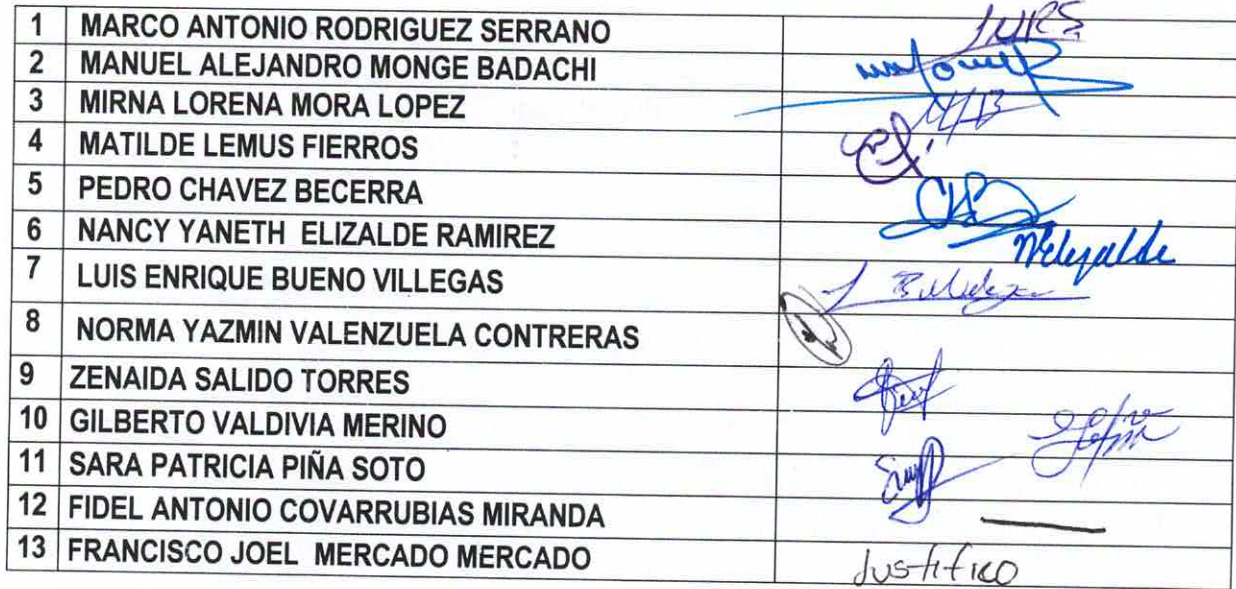 1 MARCO ANTONIO RODRIGUEZ SERRANO
2 MANUEL ALEJANDRO MONGE BADACHI
3 MIRNA LORENA MORA LOPEZ
4 MATILDE LEMUS FIERROS
5 PEDRO CHAVEZ BECERRA
6 NANCY YANETH ELIZALDE RAMIREZ
7 LUIS ENRIQUE BUENO VILLEGAS
8 NORMA YAZMIN VALENZUELA CONTRERAS
9 ZENAIDA SALIDO TORRES
10 GILBERTO VALDIVIA MERINO
11 SARA PATRICIA PIÑA SOTO
12 FIDEL ANTONIO COVARRUBIAS MIRANDA
13 FRANCISCO JOEL MERCADO MERCADO Justifico